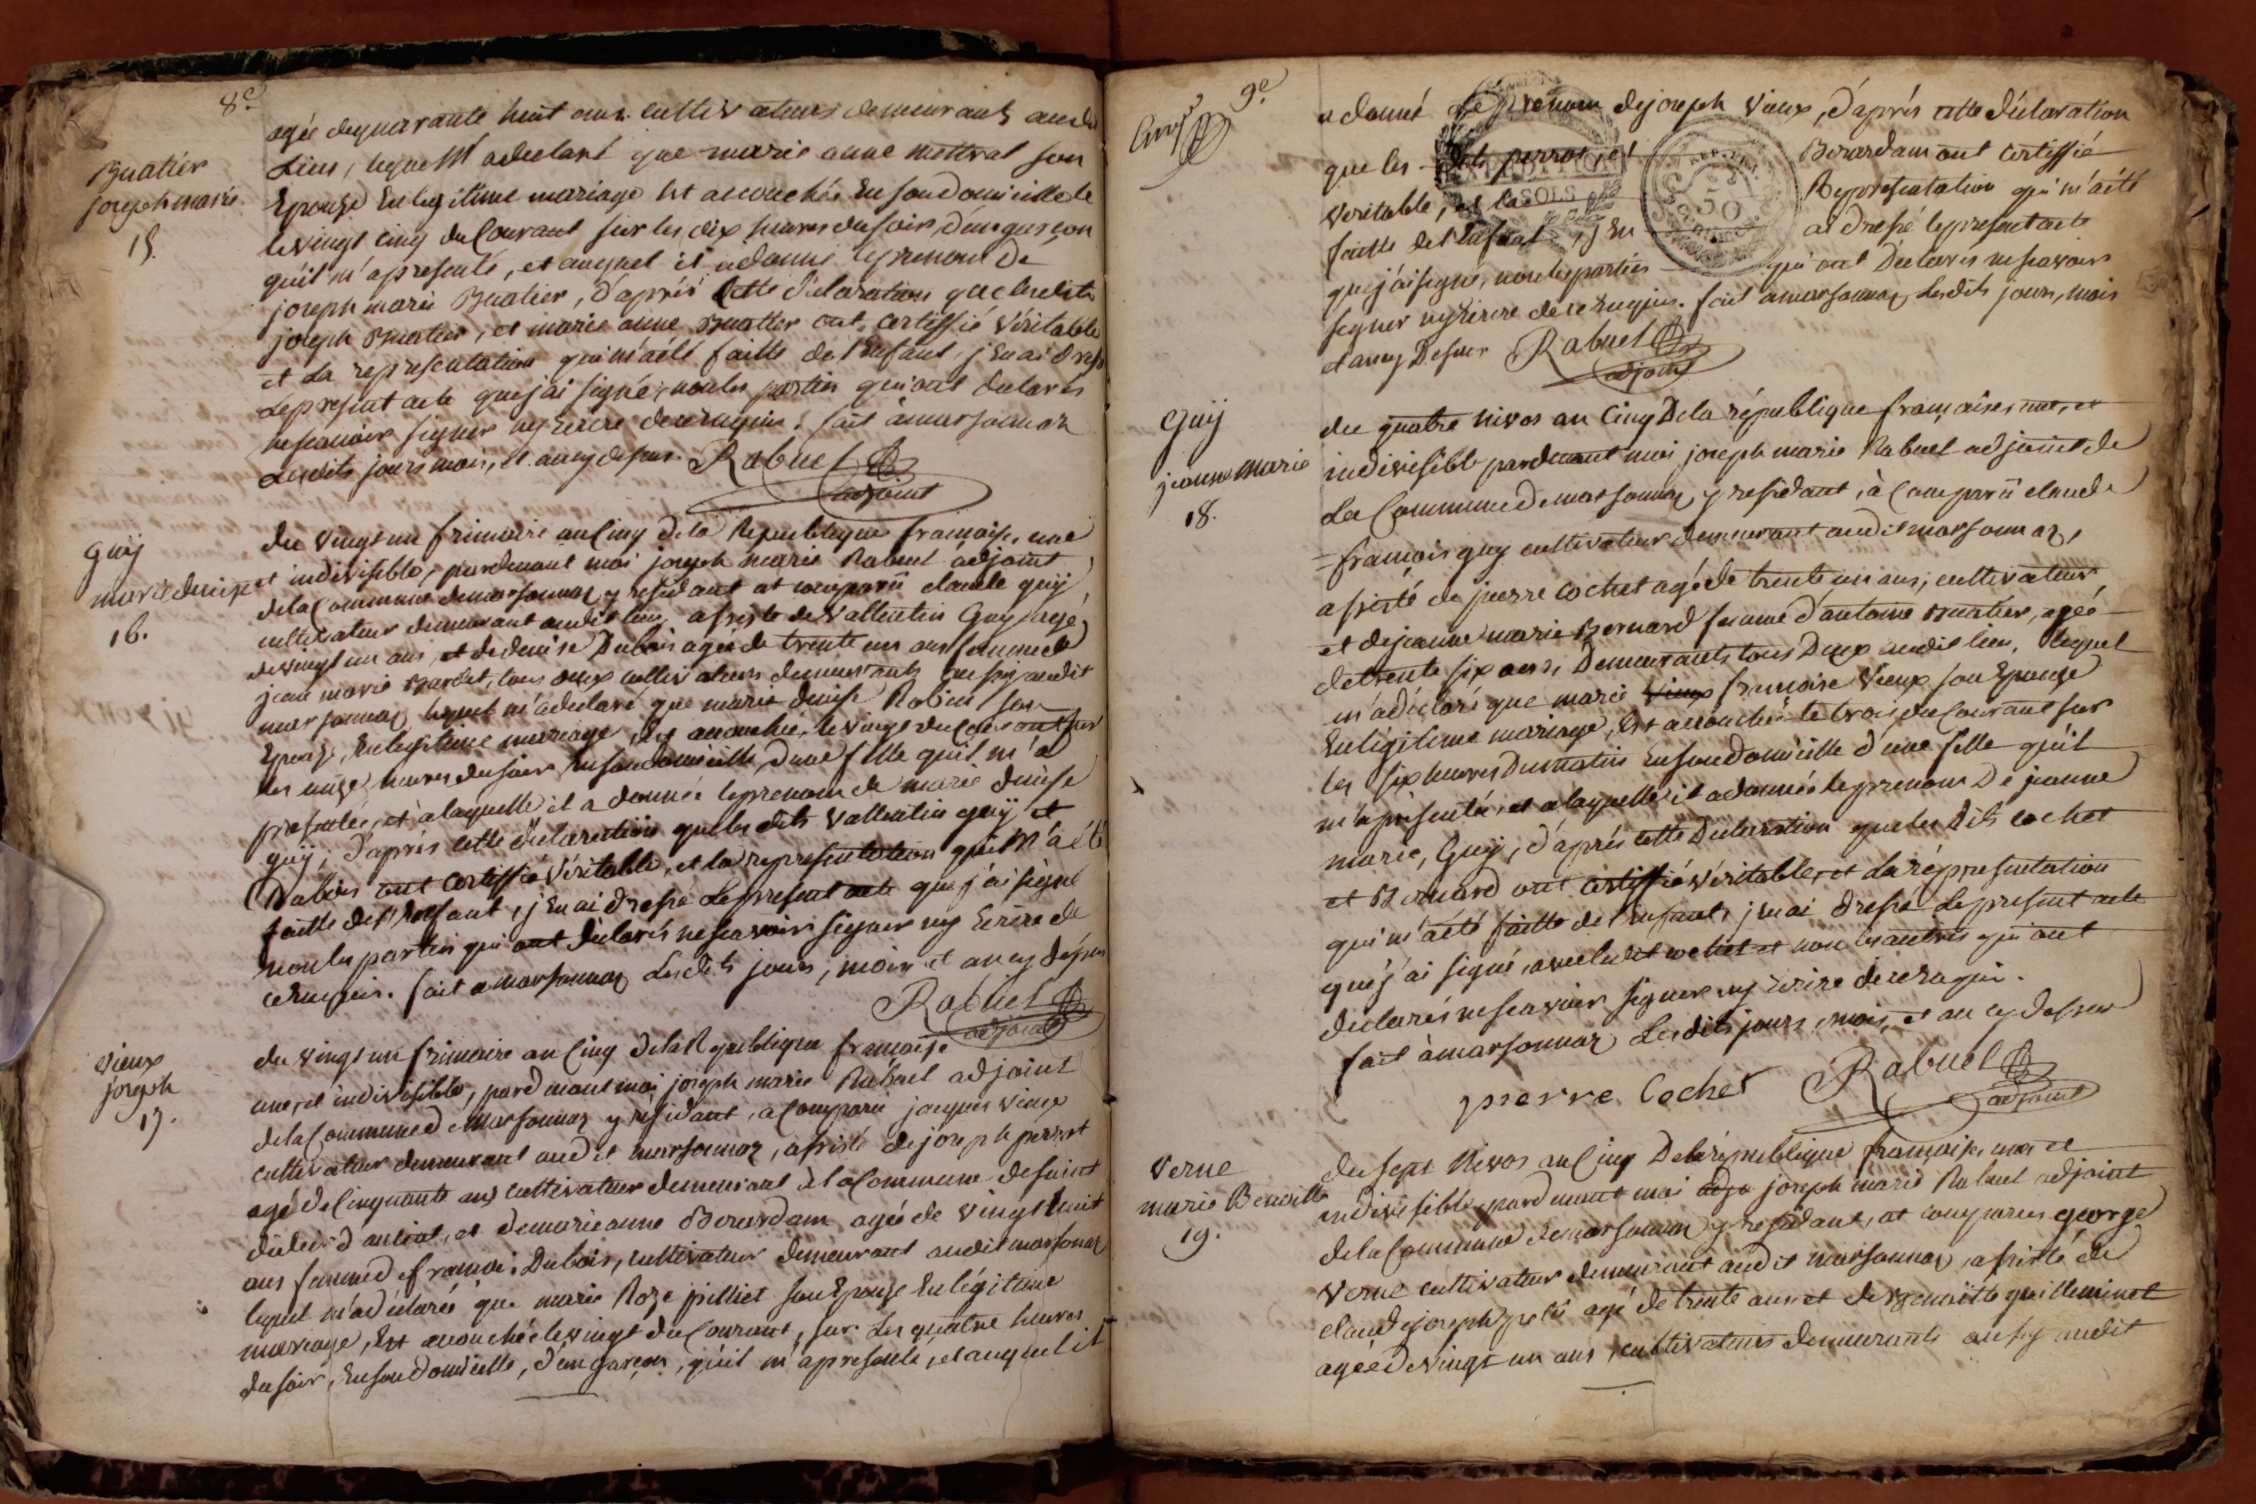 8e
Buatier
joseph marie
15.
agée de quarante huit ans cultivateurs demeurants audit
Lieu, lequel M'a declaré que marie anne Mettral son
Epouse En legitime mariage Est accouchée En son domicille le
le vingt cinq du Courant sur les dix heures du soir, d'un garçon
qu'il m'a presenté, et auquel il a donné le prenom De
joseph marie Buatier, d'aprés Cette déclaration que lesdits
joseph Buatier, et marie anne Buatier ont Certiffié Véritable
et La representation qui m'a été faitte de l'Enfant, j'En ai Dressé
Le present acte que j'ai signé, non les parties qui ont declarés
ne scavoir signer ny Ecrire de ce enquis. fait à marsonnaz
Lesdits jours mois, et an cy dessus. Rabuel
adjoint
Guÿ
marie denise
16.
du vingt un frimaire an Cinq de la Republique francaise, une
et indivisible, pardevant moi joseph marie Rabuel adjoint
de la Commune de marsonnaz y residant at comparü claude guÿ
cultivateur demeurant audit lieu, assisté de Vallentin Guy agé
de vingt un ans, et de denise Dubois agée de trente un ans femme de
jean marie Bardet, tous deux cultivateurs demeurants aussy audit
marsonnaz lequel m'a declaré que marie denise Robin son
Epouse, En legitime mariage, Est accouchée, le vingt du Courant sur
les onze heures du soir En son domicille, d'une fille qu'il m'a
presentée, et à laquelle il a donnée le prenom de marie denise
guÿ, d'aprés cette declaration que les dits Vallentin guÿ et
Dubois ont Certiffié Véritable, et la representation qui M'a été
faitte de l'Enfant, j'En ai dressé Le present acte que j'ai signé
non les parties qui ont déclarés ne scavoir signer ny Ecrire de
ce enquis. fait a marsonnaz Lesdits jours, mois et an cy dessus
Rabuel
adjoint
Vieux
joseph
17.
du vingt un frimaire an Cinq de la Republique francaise
une, et indivisible, pardevant moi joseph marie Rabuel adjoint
de la Commune de Marsonnaz y residant, a Comparü jacques Vieux
cultivateur demeurant audit marsonnaz, assisté de joseph perrot
agé de Cinquante ans cultivateur demeurant à la Commune de saint
didier d'aussiat, et de marie anne Berardam agée de vingt huit
ans femme de francois Dubois, cultivateur demeurant audit marsonnaz
lequel m'a déclaré que marie Roze pilliet son Epouse En légitime
mariage, Est accouchée le vingt du Courant, sur Les quatre heures
du soir, En son domicille, d'un garçon, qu'il m'a presenté, et auquel il
9e
a donné Le prenom de joseph Vieux, d'aprés cette déclaration
que les dits perrot, et Berardam ont Certiffié
Veritable, et la Representation qui m'a été
faitte de l'Enfant, j'En ai dressé le present acte
que j'ai signé, non les parties qui ont Déclarés ne scavoir
signer ny Ecrire de ce enquis. fait a marsonnaz Lesdits jours, mois
et an cy Dessus Rabuel
adjoint
Guÿ
jeanne marie
18.
du quatre Nivos an Cinq De la république francaise, une, et
indivisible pardevant moi joseph marie Rabuel adjoint de
La Commune de marsonnaz y residant, à Comparü claude
francois guy cultivateur demeurant audit marsonnaz,
assisté de pierre cochet agé de trente un ans, cultivateur
et de jeanne marie Bernard femme d'antoine Buatier, agée
de trente six ans, Demeurants tous Deux audit lieu, lequel
m'a déclaré que marie Vieux francoise Vieux son Epouze
En légitime mariage, Est accouchée le trois du Courant sur
les six heures Du matin En son Domicille d'une fille qu'il
m'a presentée, et a laquelle il a donnée le prenom De jeanne
marie, Guÿ, d'aprés cette Declaration que les Dits cochet
et Bernard ont certiffié véritable, et La répresentation
qui m'a été faitte de l'enfant, j'en ai dressé Le present acte
que j'ai signé, avec ledit cochet et non les autres qui ont
declarés ne scavoir signer ny Ecrire de ce enquis.
fait à marsonnaz Lesdits jours, mois, et an cy Dessus
pierre Cochet Rabuel
adjoint
Verne
marie Benoitte
19.
du sept Nivos an Cinq De la république francaise, une et
indivisible, pardevant moi adjo joseph marie Rabuel adjoint
de la Commune de marsonnaz y residant, at comparu george
Verne cultivateur demeurant audit marsonnaz, assisté de
claude joseph agé de trente ans et de Benoitte guilleminot
agée de vingt un ans, cultivateurs demeurants aussy audit